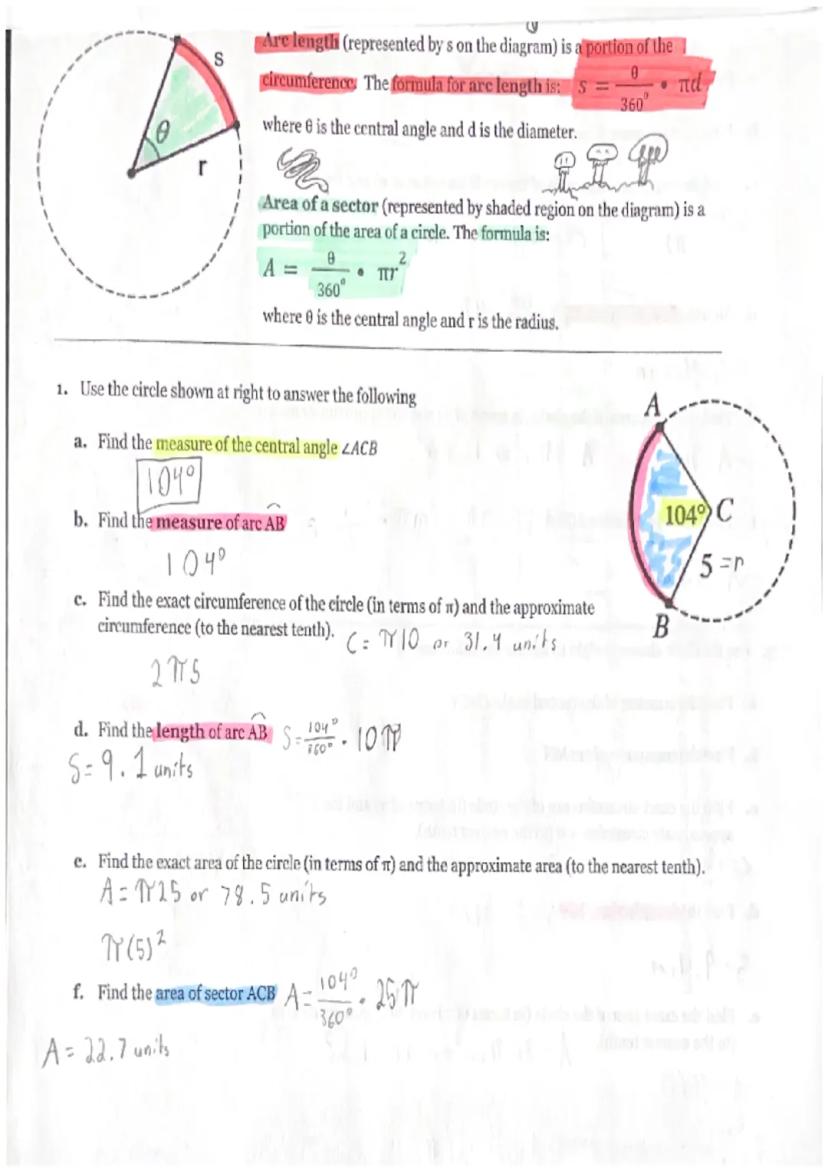 s
θ
r
Arc length (represented by s on the diagram) is a portion of the
circumference. The formula for arc length is: s = θ/360° • πd
where θ is the central angle and d is the diameter.
Area of a sector (represented by shaded region on the diagram) is a
portion of the area of a circle. The formula is:
A = θ/360° • πr²
where θ is the central angle and r is the radius.
1. Use the circle shown at right to answer the following
a. Find the measure of the central angle ∠ACB
104°
b. Find the measure of arc AB
104°
A
104°
C
5 = r
B
c. Find the exact circumference of the circle (in terms of π) and the approximate
circumference (to the nearest tenth). C = π10 or 31.4 units
2π5
d. Find the length of arc AB S = 104°/360° • 10π
S = 9.1 units
e. Find the exact area of the circle (in terms of π) and the approximate area (to the nearest tenth).
A = π25 or 78.5 units
π(5)²
f. Find the area of sector ACB A = 104°/360° • 25π
A = 22.7 units